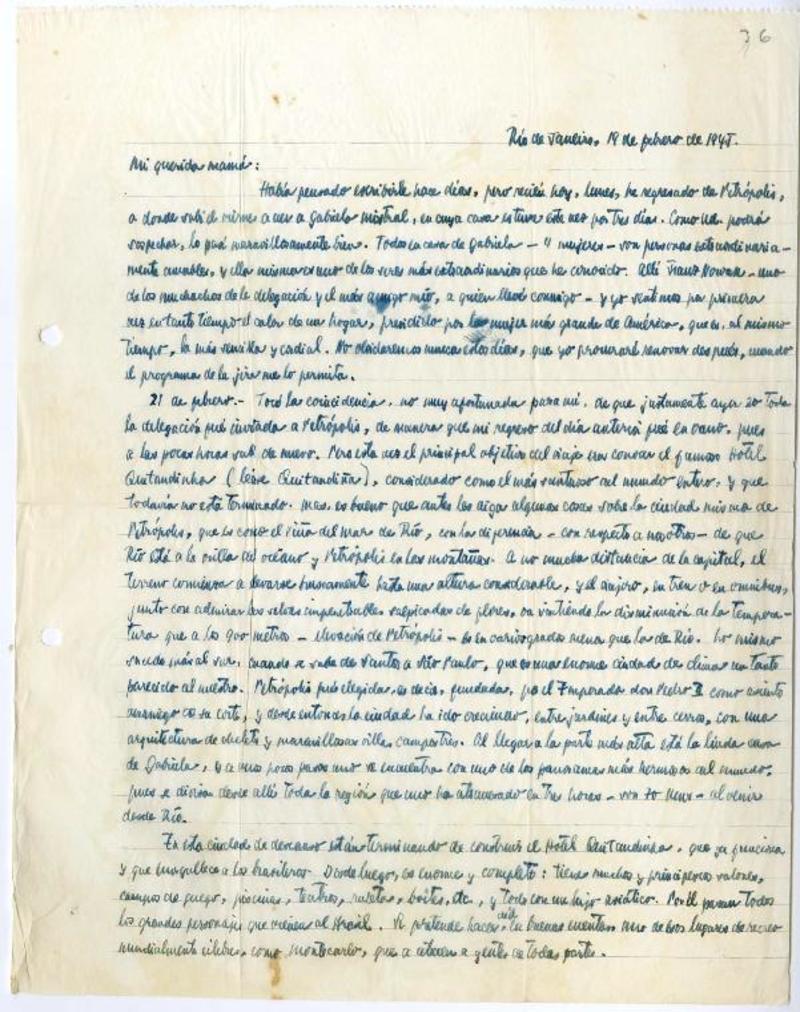 36
Río de Janeiro, 19 de febrero de 1945.
Mi querida mamá:
Había pensado escribirle hace días, pero recién hoy, lunes, he regresado de Petrópolis,
a donde subí el viernes a ver a Gabriela Mistral, en cuya casa estuve esta vez por tres días. Como Ud. podrá
sospechar, lo pasé maravillosamente bien. Todas en casa de Gabriela – 4 mujeres – son personas extraordinaria-
mente amables, y ella misma es uno de los seres más extraordinarios que he conocido. Allí Franz Nowak – uno
de los muchachos de la delegación y el más amigo mío, a quien llevé conmigo – y yo sentimos por primera
vez en tanto tiempo el calor de un hogar, presidido por la mujer más grande de América, que es, al mismo
tiempo, la más sencilla y cordial. No olvidaremos nunca estos días, que yo procuraré renovar después, cuando
el programa de la jira me lo permita.
21 de febrero.– Tocó la coincidencia, no muy afortunada para mí, de que justamente ayer 20 toda
la delegación fué invitada a Petrópolis, de manera que mi regreso del día anterior fué en vano, pues
a las pocas horas subí de nuevo. Pero esta vez el principal objetivo del viaje era conocer el famoso Hotel
Quitandinha (léase Quitandiña), considerado como el más suntuoso del mundo entero, y que
todavía no está terminado. Mas, es bueno que antes les diga algunas cosas sobre la ciudad misma de
Petrópolis, que es como el Viña del Mar de Río, con la diferencia – con respecto a nosotros – de que
Río está a la orilla del océano y Petrópolis en las montañas. A no mucha distancia de la capital, el
terreno comienza a elevarse bruscamente hasta una altura considerable, y el viajero, en tren o en omnibus,
junto con admirar las selvas impenetrables salpicadas de flores, va sintiendo la disminución de la tempera-
tura que a los 900 metros – elevación de Petrópolis – es en varios grados menor que la de Río. Lo mismo
sucede más al sur, cuando se sube de Santos a São Paulo, que es una enorme ciudad de clima un tanto
parecido al nuestro. Petrópolis fué elegida, es decir, fundada, por el Emperador don Pedro II como asiento
veraniego de su corte, y desde entonces la ciudad ha ido creciendo, entre jardines y entre cerros, con una
arquitectura de chalets y maravillosas villas campestres. Al llegar a la parte más alta está la linda casa
de Gabriela, y a unos pocos pasos uno se encuentra con uno de los panoramas más hermosos del mundo,
pues se divisa desde allí toda la región que uno ha atravesado en tres horas – son 70 kms – al venir
desde Río.
En esta ciudad de descanso están terminando de construir el Hotel Quitandinha, que ya funciona
y que enorgullece a los brasileros. Desde luego, es enorme y completo: tiene muchos y principescos salones,
campos de juego, piscinas, teatros, ruletas, boîtes, etc., y todo con un lujo asiático. Por él pasan todos
los grandes personajes que vienen al Brasil. Se pretende hacer de él, en buenas cuentas, uno de esos lugares de recreo
mundialmente célebres, como Montecarlo, que atraen a gentes de todas partes.